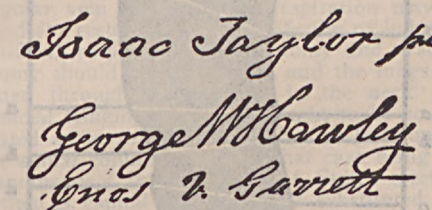 Isaac Taylor
George W Hawley
Enos V. Garrett